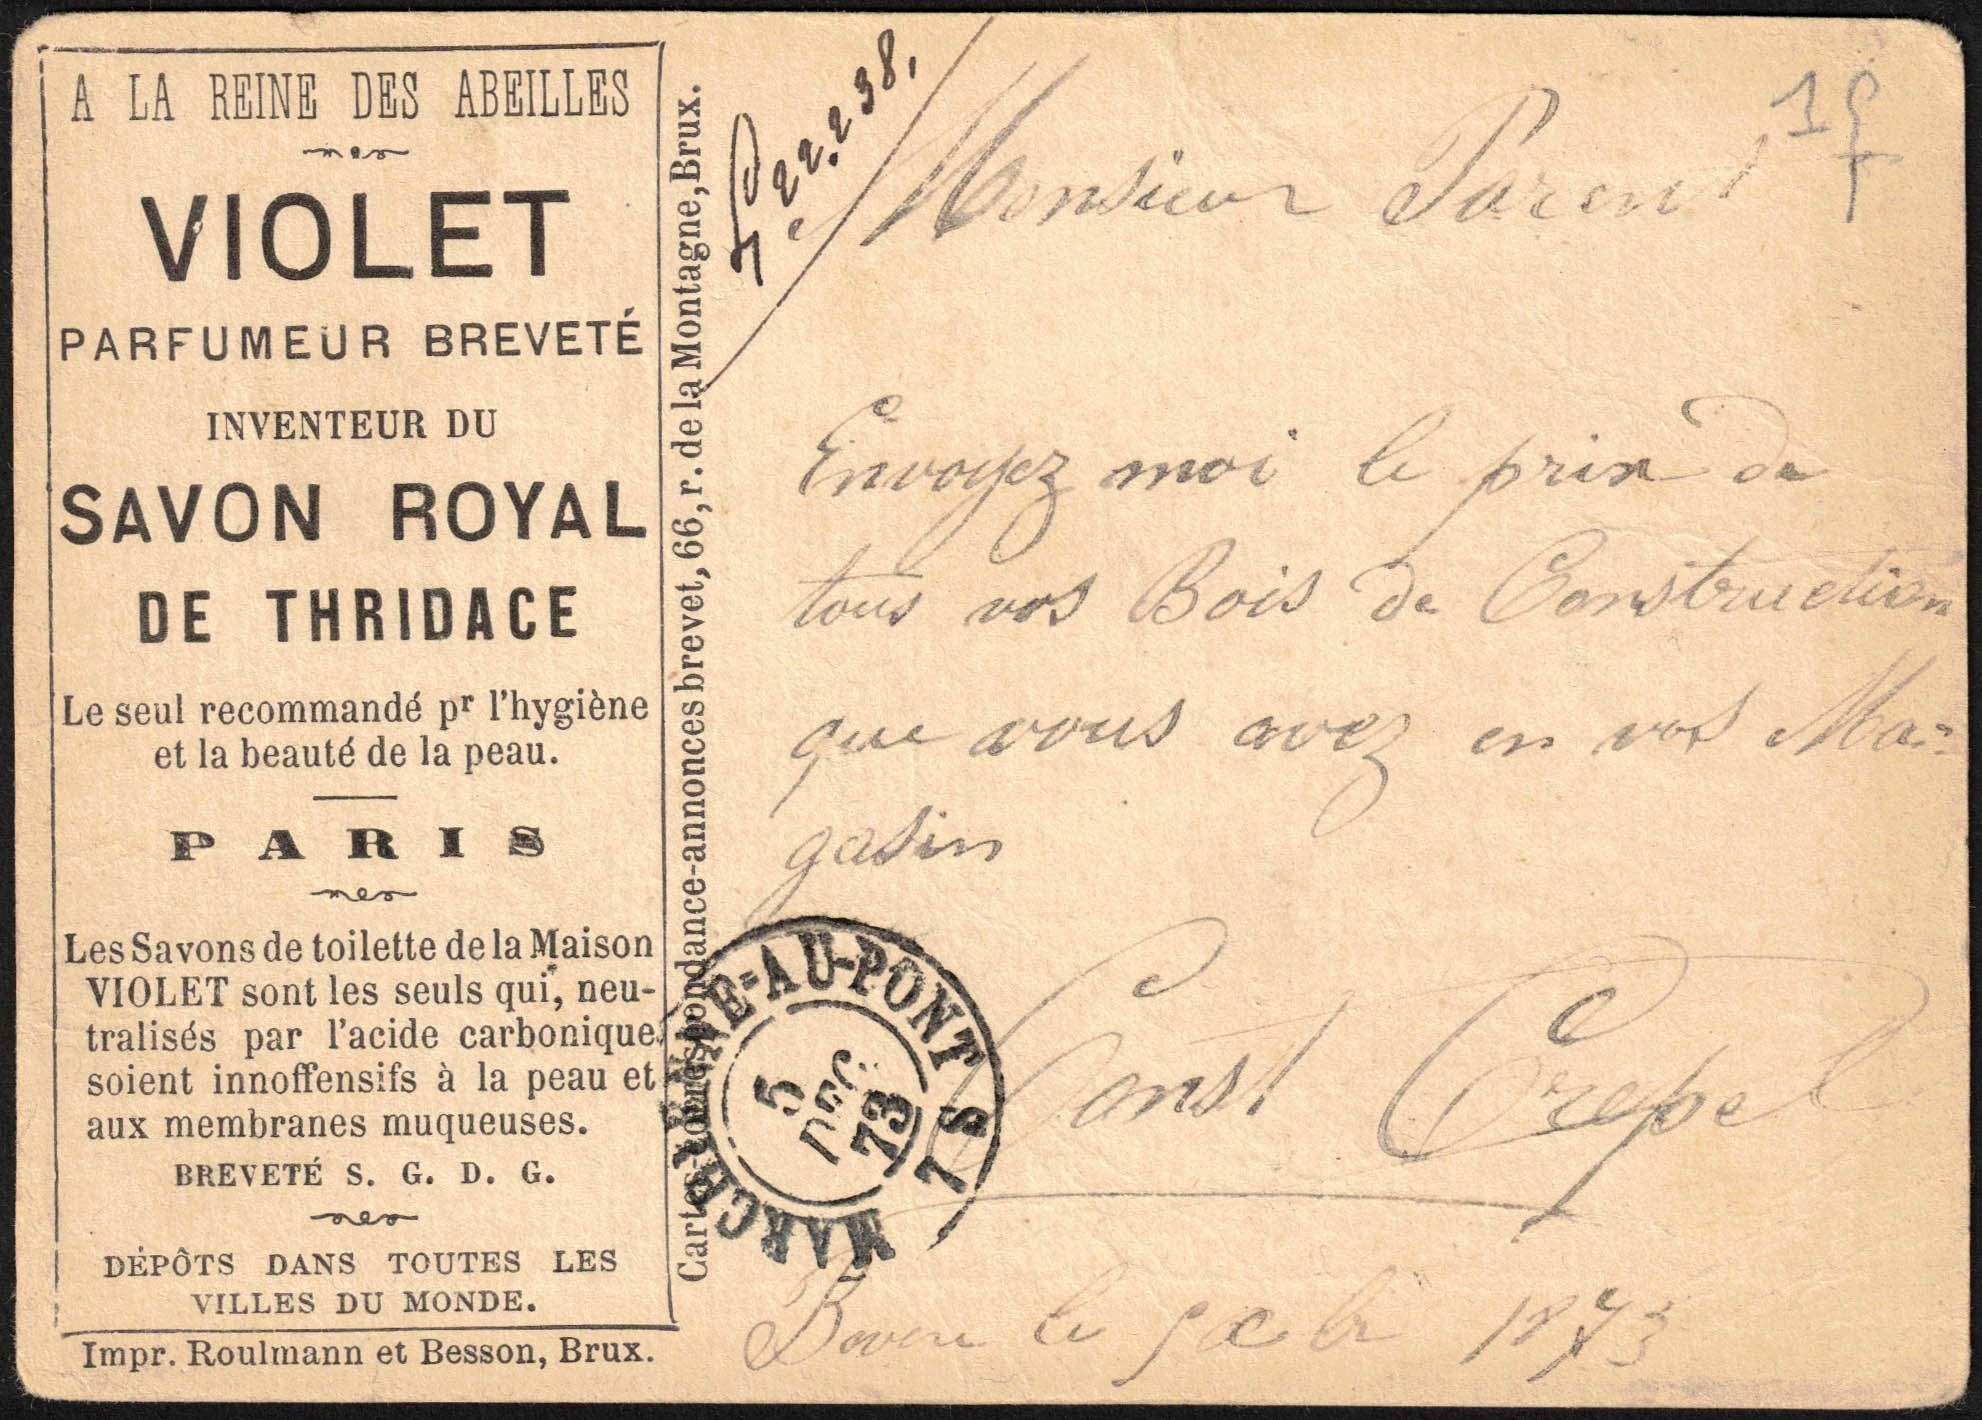 A LA REINE DES ABEILLES
VIOLET
PARFUMEUR BREVETÉ
INVENTEUR DU
SAVON ROYAL
DE THRIDACE
Le seul recommandé pr l'hygiène
et la beauté de la peau.
PARIS
Les Savons de toilette de la Maison
VIOLET sont les seuls qui, neu-
tralisés par l'acide carbonique
soient innoffensifs à la peau et
aux membranes muqueuses.
BREVETÉ S. G. D. G.
DÉPÔTS DANS TOUTES LES
VILLES DU MONDE.
Impr. Roulmann et Besson, Brux.
Cartes-correspondance-annonces brevet, 66, r. de la Montagne, Brux.
22.2 38.
Monsieur Parent
Envoyez moi le prix de
tous vos Bois de Construction
que vous avez en vos Ma-
gasin
Const Crepel
le 5 1873
MARCHIENNE-AU-PONT
5
DEC.
73
7 S